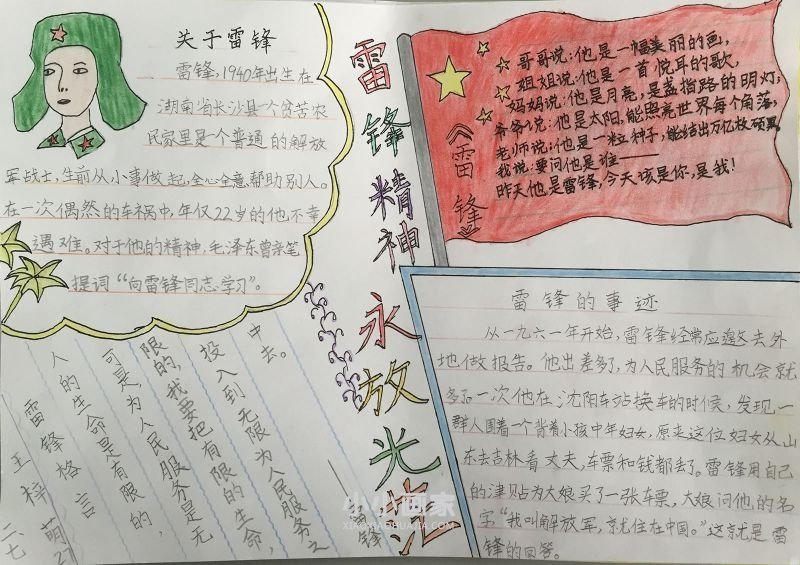 关于雷锋
雷锋，1940年出生在
湖南省长沙县一个贫苦农
民家里是个普通的解放
军战士，生前从小事做起，全心全意帮助别人。
在一次偶然的车祸中，年仅22岁的他不幸
遇难。对于他的精神，毛泽东曾亲笔
提词“向雷锋同志学习”。
雷锋精神永放光芒
《雷锋》
哥哥说：他是一幅美丽的画，
姐姐说：他是一首悦耳的歌，
妈妈说：他是月亮，是盏指路的明灯，
爷爷说：他是太阳，能照亮世界每个角落，
老师说：他是一粒种子，能结出万亿放硕果
我说：要问他是谁——
昨天他是雷锋，今天该是你，是我！
雷锋的事迹
从一九六一年开始，雷锋经常应邀去外
地做报告。他出差多了，为人民服务的机会就
多了。一次他在沈阳车站换车的时候，发现一
群人围着一个背着小孩中年妇女，原来这位妇女从山
东去吉林看丈夫，车票和钱都丢了。雷锋用自己
的津贴为大娘买了一张车票，大娘问他的名
字“我叫解放军，就住在中国。”这就是雷
锋的回答。
雷锋格言
人的生命是有限的，
可是，为人民服务是无
限的，我要把有限的生命，
投入到无限为人民服务之
中去。
雷锋
王梓萌27
二七
小小画家
XIAOXIAOHUAJIA.COM